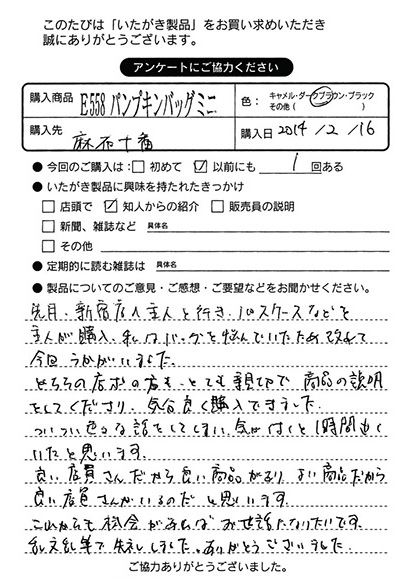 このたびは「いたがき製品」をお買い求めいただき
誠にありがとうございます。
アンケートにご協力ください
購入商品 E558 パンプキンバッグミニ 色: キャメル・ダークブラウン・ブラック
その他( )
購入先 麻布十番 購入日 2014 / 2 / 16
● 今回のご購入は: □ 初めて ☑ 以前にも 1 回ある
● いたがき製品に興味を持たれたきっかけ
□ 店頭で ☑ 知人からの紹介 □ 販売員の説明
□ 新聞、雑誌など 具体名
□ その他
● 定期的に読む雑誌は 具体名
● 製品についてのご意見・ご感想・ご要望などをお聞かせください。
先月、新宿店へ主人と行き、パスケースなどを
主人が購入、私はバッグを悩んでいたため改めて
今回うかがいました。
どちらの店舗の方も、とても親切で商品の説明
をしてくださり、気分良く購入できました。
ついつい色々な話をしてしまい、気が付くと1時間近く
いたと思います。
良い店員さんだから良い商品があり、よい商品だから
良い店員さんがいるのだと思います。
これからも機会があればお世話になりたいです。
乱文乱筆で失礼しました。ありがとうございました。
ご協力ありがとうございました。